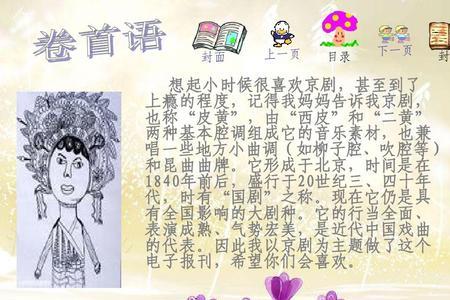 卷首语
封面
上一页
目录
下一页
封
想起小时候很喜欢京剧，甚至到了
上瘾的程度，记得我妈妈告诉我京剧，
也称“皮黄”，由“西皮”和“二黄”
两种基本腔调组成它的音乐素材，也兼
唱一些地方小曲调（如柳子腔、吹腔等）
和昆曲曲牌。它形成于北京，时间是在
1840年前后，盛行于20世纪三、四十年
代，时有“国剧”之称。现在它仍是具
有全国影响的大剧种。它的行当全面、
表演成熟、气势宏美，是近代中国戏曲
的代表。因此我以京剧为主题做了这个
电子报刊，希望你们会喜欢。